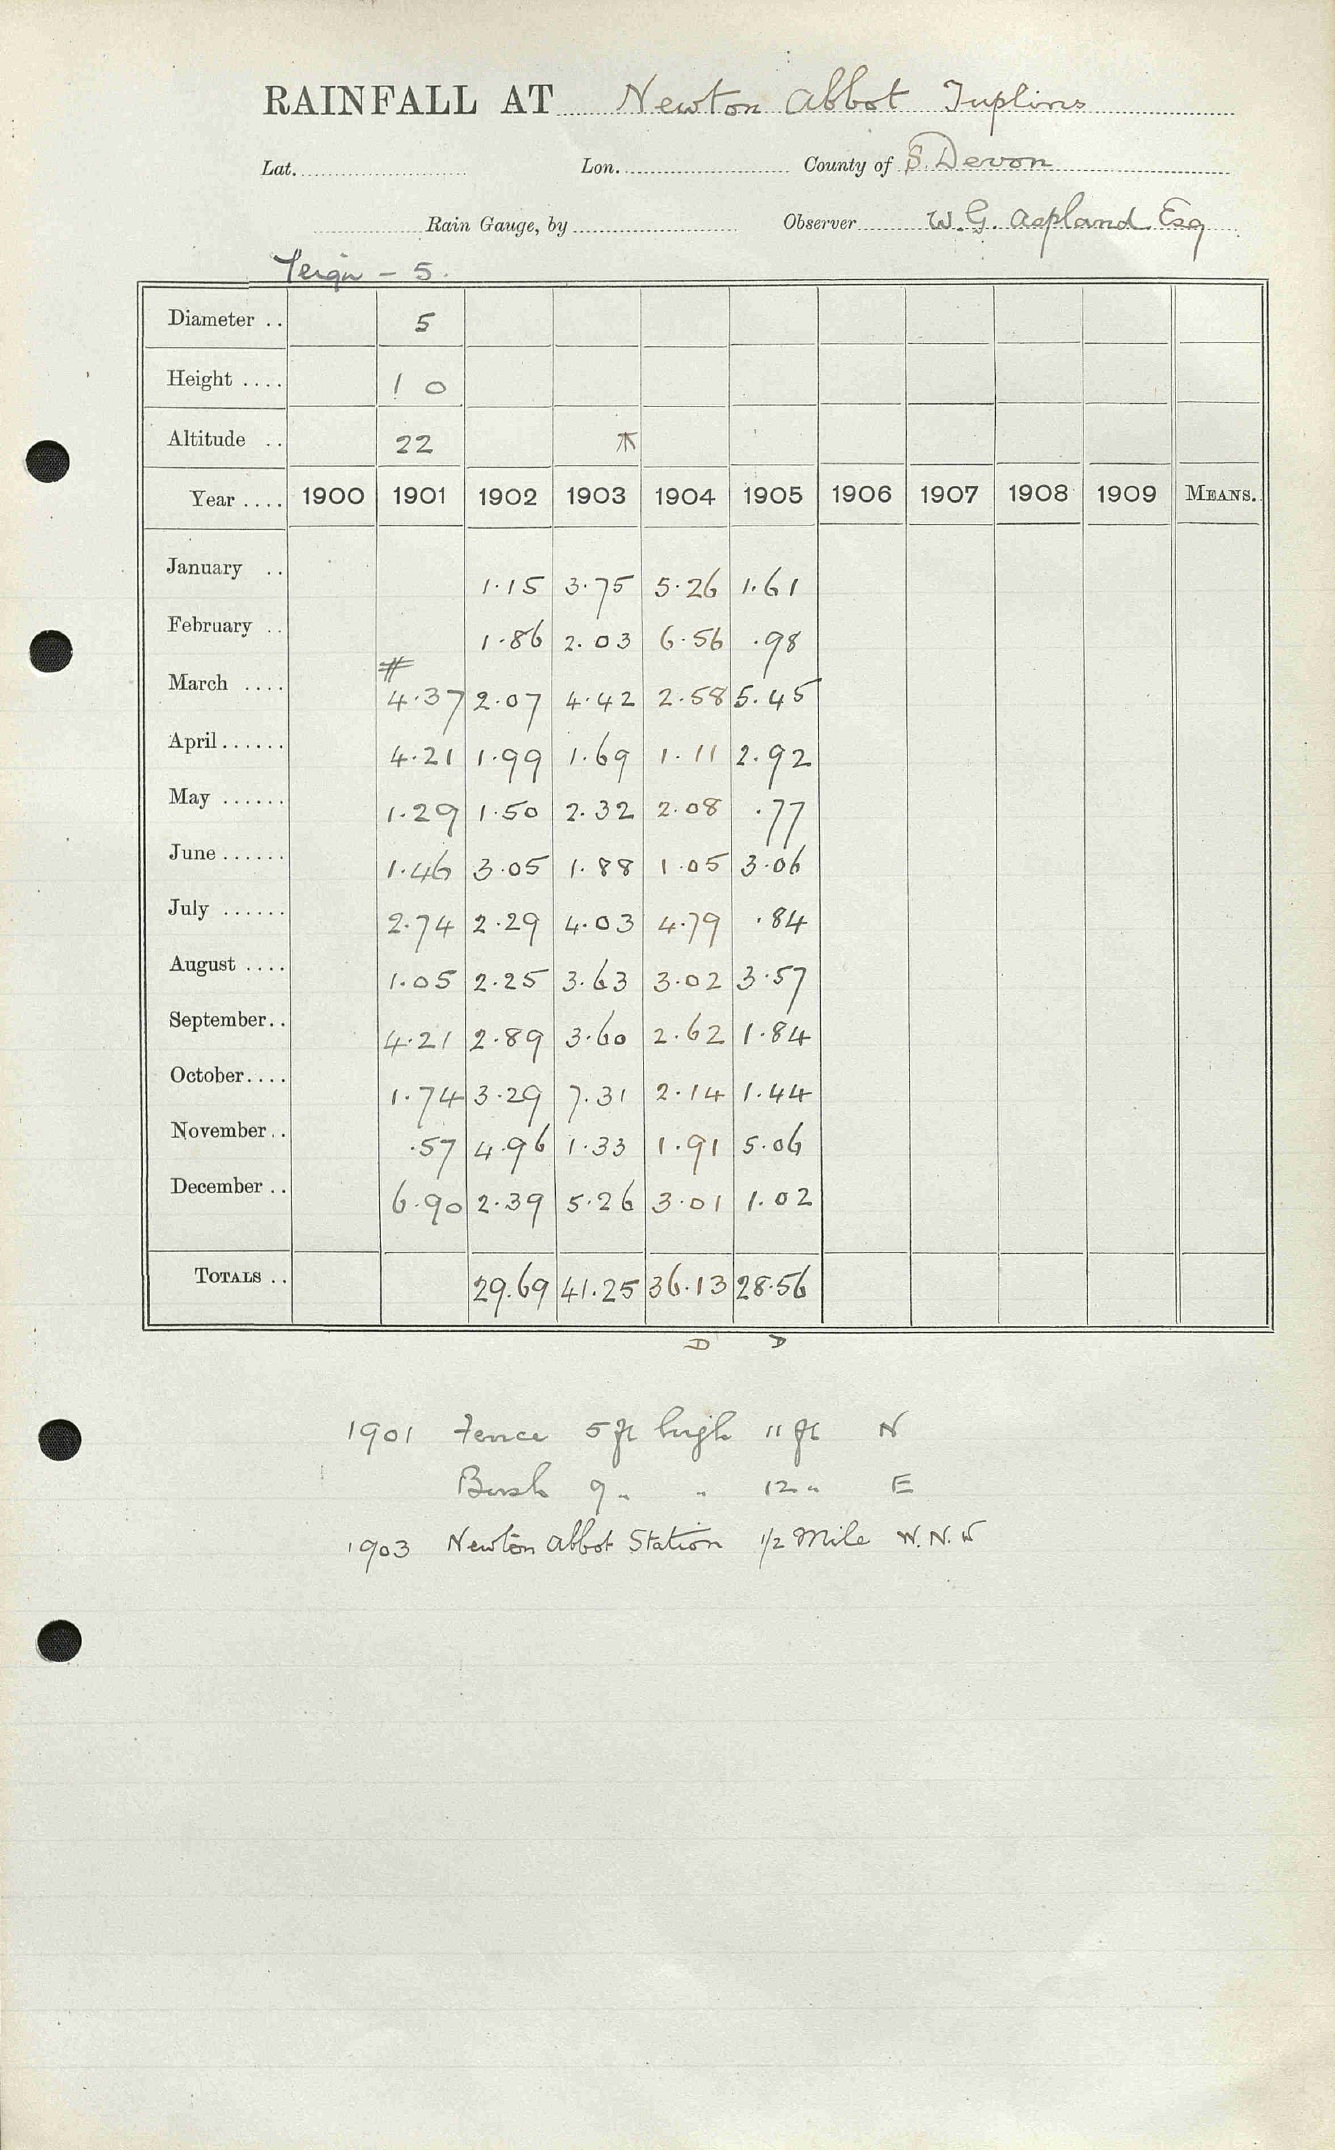 RAINFALL AT Newton Abbot Tuplins
Lat. Lon. County of S. Devon
Rain Gauge, by Observer W. G. Aspland Esq
Teign - 5.
Diameter .. 5
Height .... 1 0
Altitude .. 22
Year .... 1900 1901 1902 1903 1904 1905 1906 1907 1908 1909 MEANS.
January .. 1.15 3.75 5.26 1.61
February .. 1.86 2.03 6.56 .98
March .... # 4.37 2.07 4.42 2.58 5.45
April...... 4.21 1.99 1.69 1.11 2.92
May ...... 1.29 1.50 2.32 2.08 .77
June...... 1.46 3.05 1.88 1.05 3.06
July ...... 2.74 2.29 4.03 4.79 .84
August .... 1.05 2.25 3.63 3.02 3.57
September.. 4.21 2.89 3.60 2.62 1.84
October.... 1.74 3.29 7.31 2.14 1.44
November.. .57 4.96 1.33 1.91 5.06
December .. 6.90 2.39 5.26 3.01 1.02
TOTALS .. 29.69 41.25 36.13 28.56
D D
1901 Fence 5 ft high 11 ft N
Bush 9 " " 12 " E
1903 Newton Abbot Station 1/2 Mile W.N.W